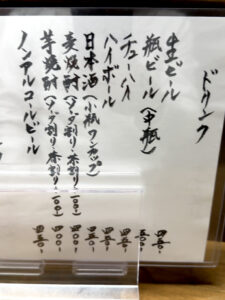 ドリンク
生ビール 四五〇-
瓶ビール(中瓶)
チューハイ 四五〇-
ハイボール 四五〇-
日本酒(小瓶ワンカップ)
麦焼酎(ソーダ割り・水割り 一〇〇) 四〇〇-
芋焼酎(ソーダ割り・水割り 一〇〇) 四〇〇-
ノンアルコールビール